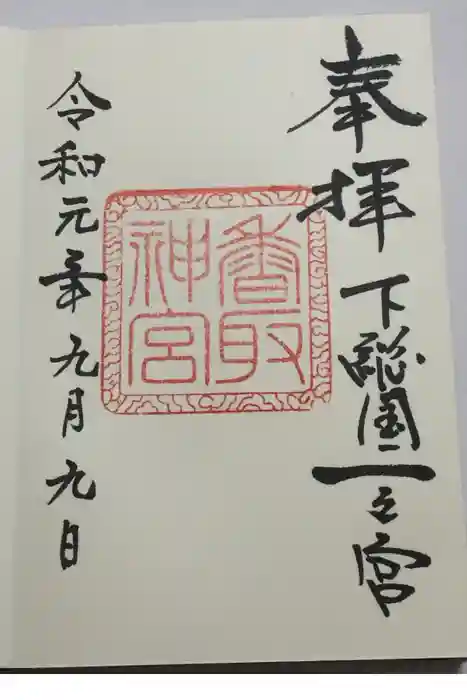 奉拝 下総国一之宮
香取
神宮
令和元年九月九日